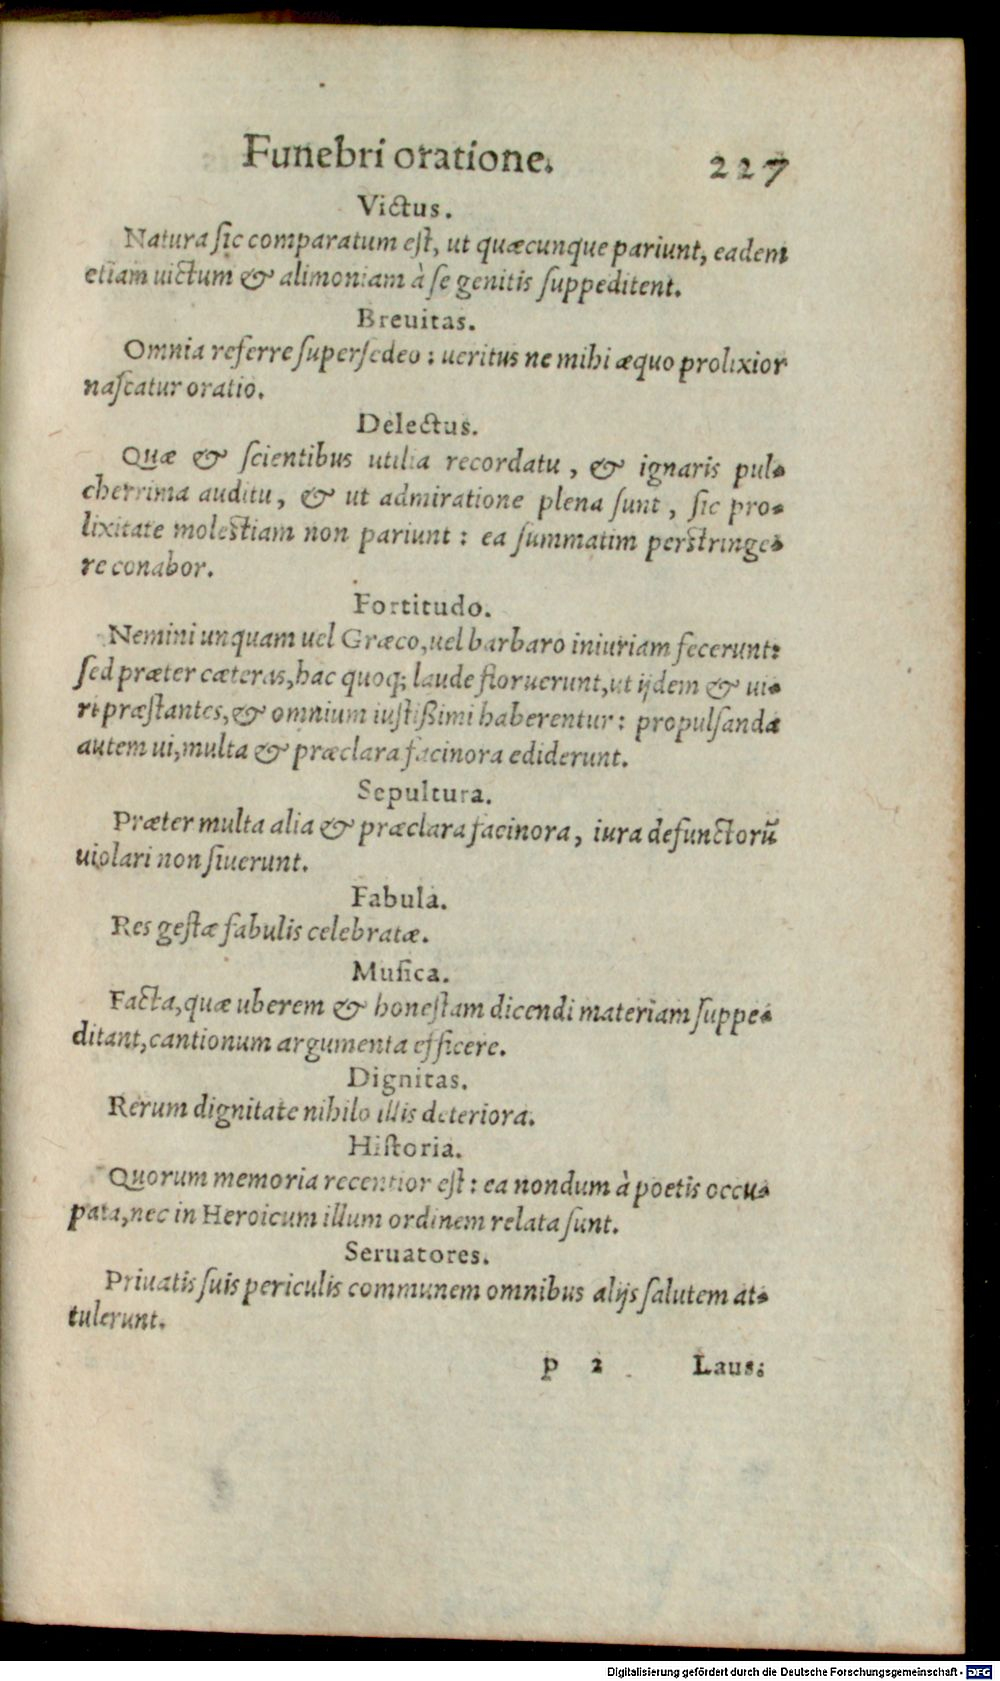 Funebri oratione. 227
Victus.
Natura ſic comparatum eſt, ut quæcunque pariunt, eadem
etiam uictum & alimoniam à ſe genitis ſuppeditent.
Breuitas.
Omnia referre ſuperſedeo : ueritus ne mihi æquo prolixior
naſcatur oratio.
Delectus.
Quæ & ſcientibus utilia recordatu , & ignaris pul-
cherrima auditu, & ut admiratione plena ſunt , ſic pro-
lixitate moleſtiam non pariunt : ea ſummatim perſtringe-
re conabor.
Fortitudo.
Nemini unquam uel Græco, uel barbaro iniuriam fecerunt:
ſed præter cæteras, hac quoq; laude floruerunt, ut ijdem & ui-
ri præſtantes, & omnium iuſtißimi haberentur : propulſanda
autem ui, multa & præclara facinora ediderunt.
Sepultura.
Præter multa alia & præclara facinora, iura defunctorũ
uiolari non ſiuerunt.
Fabula.
Res geſtæ fabulis celebratæ.
Muſica.
Facta, quæ uberem & honeſtam dicendi materiam ſuppe-
ditant, cantionum argumenta efficere.
Dignitas.
Rerum dignitate nihilo illis deteriora.
Hiſtoria.
Quorum memoria recentior eſt : ea nondum à poetis occu-
pata, nec in Heroicum illum ordinem relata ſunt.
Seruatores.
Priuatis ſuis periculis communem omnibus alijs ſalutem at-
tulerunt.
p 2 Laus.
Digitalisierung gefördert durch die Deutsche Forschungsgemeinschaft - DFG